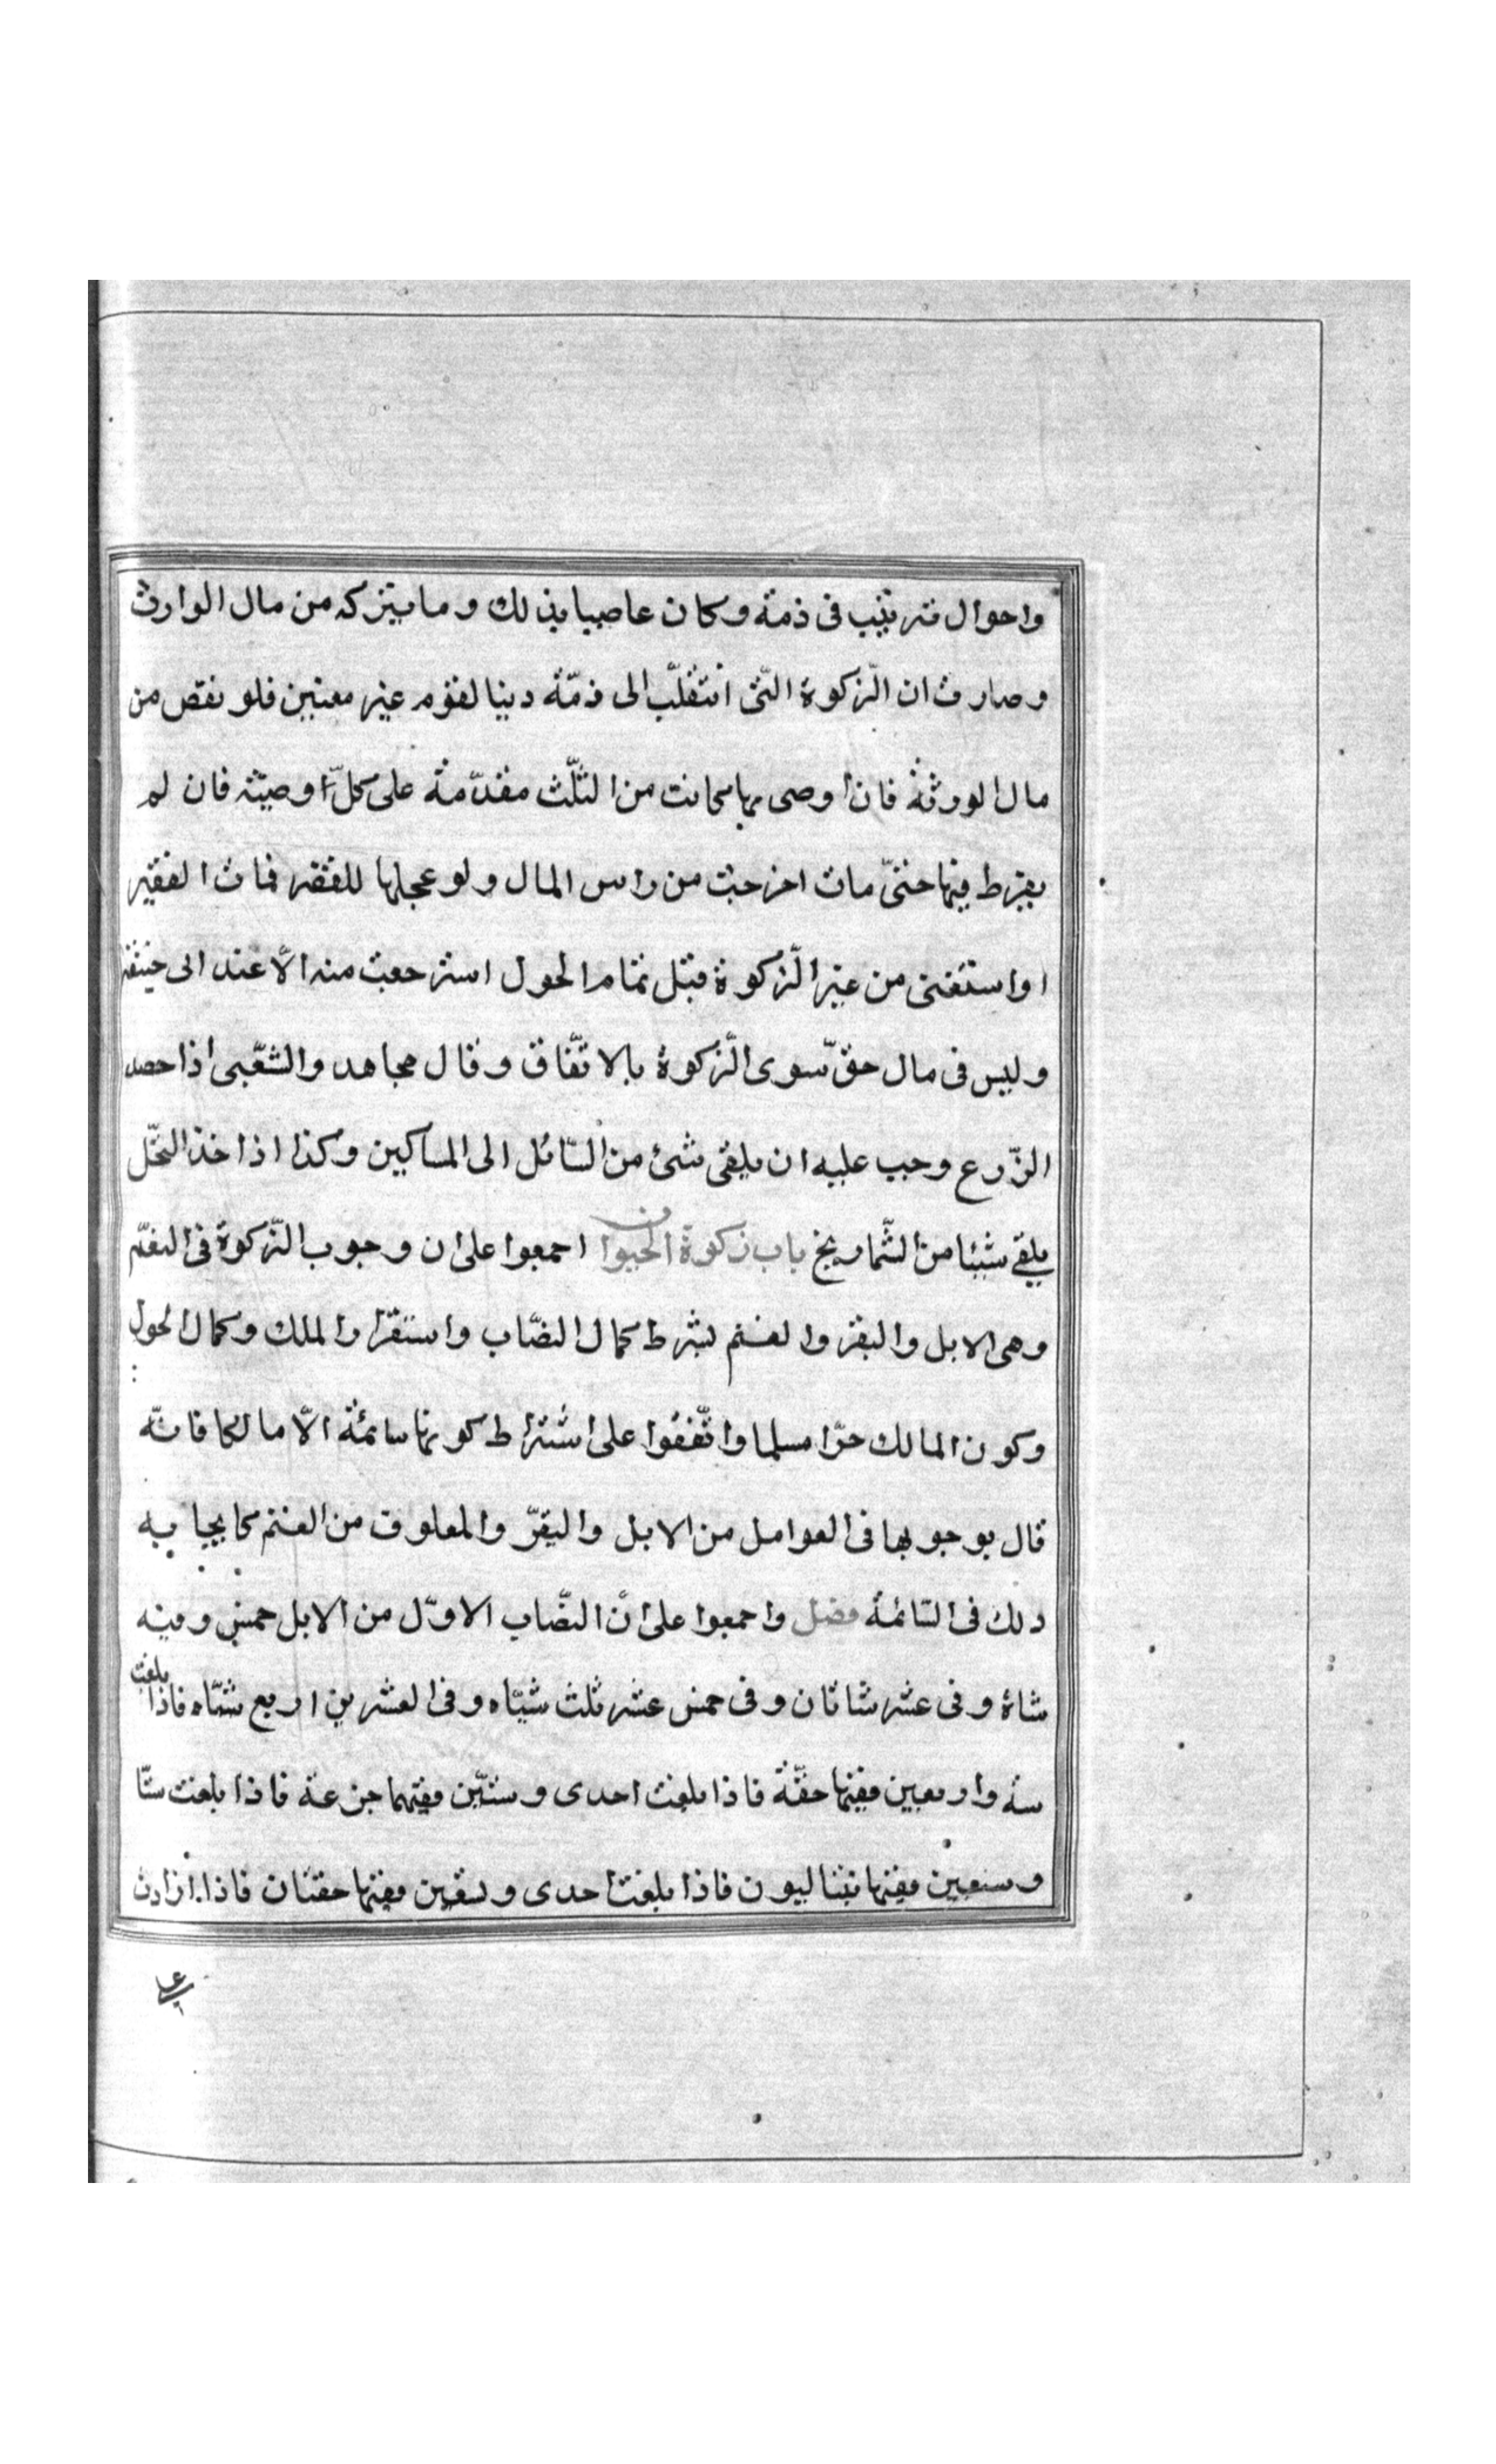 واحوال فترتيب فى ذمة وكان عاصيا بذلك وما يتركه من مال الوارث
وصارت ان الزّكوة التّى انتقلّب الى ذمّة دينا لقوم غير معنيين فلو نقص من
مال الوورثة فان اوصى بها كانت من الثلّث مقدّمة على كلّ اوصيّته فان لم
يفرط فيها حتىّ مات اخرجت من راس المال ولو عجلها للفقر فمات الفقير
او استغنى من غير الزّكوة قبل تمام الحول استرجعت منه الاّ عند ابى حنيفة
وليس فى مال حقّ سوى الزّكوة بالاتّفاق وقال مجاهد والشعّبى اذا حصد
الزّرع وجب عليه ان يلقى شئ من السّائل الى المساكين وكذا اذا خذ النخّل
يلقى شيئا من الشّماريخ باب زكوة الحيوان اجمعوا على ان وجوب الزّكوة فى النعّم
وهى الابل والبقر والغنم بشرط كمال النصّاب واستقرار الملك وكمال الحول
وكون المالك حرّا مسلما واتّفقوا على اشتراط كونها سائمة الاّ مالكا فانّه
قال بوجوبها فى العوامل من الابل والبقرّ والمعلوف من الغنم كايجابه
ذلك فى السّائمة فصل واجمعوا على انّ النصّاب الاوّل من الابل خمس وفيه
شاة وفى عشر شاتان وفى خمس عشر ثلث شيّاه وفى العشرين اربع شيّاه فاذا بلغت
ستة واربعين ففيها حقّة فاذا بلغت احدى وستيّن ففيها جزعة فاذا بلغت ستّا
وسبعين ففيها بنتا لبون فاذا بلغت احدى وتسعين ففيها حقتان فاذا ازادت